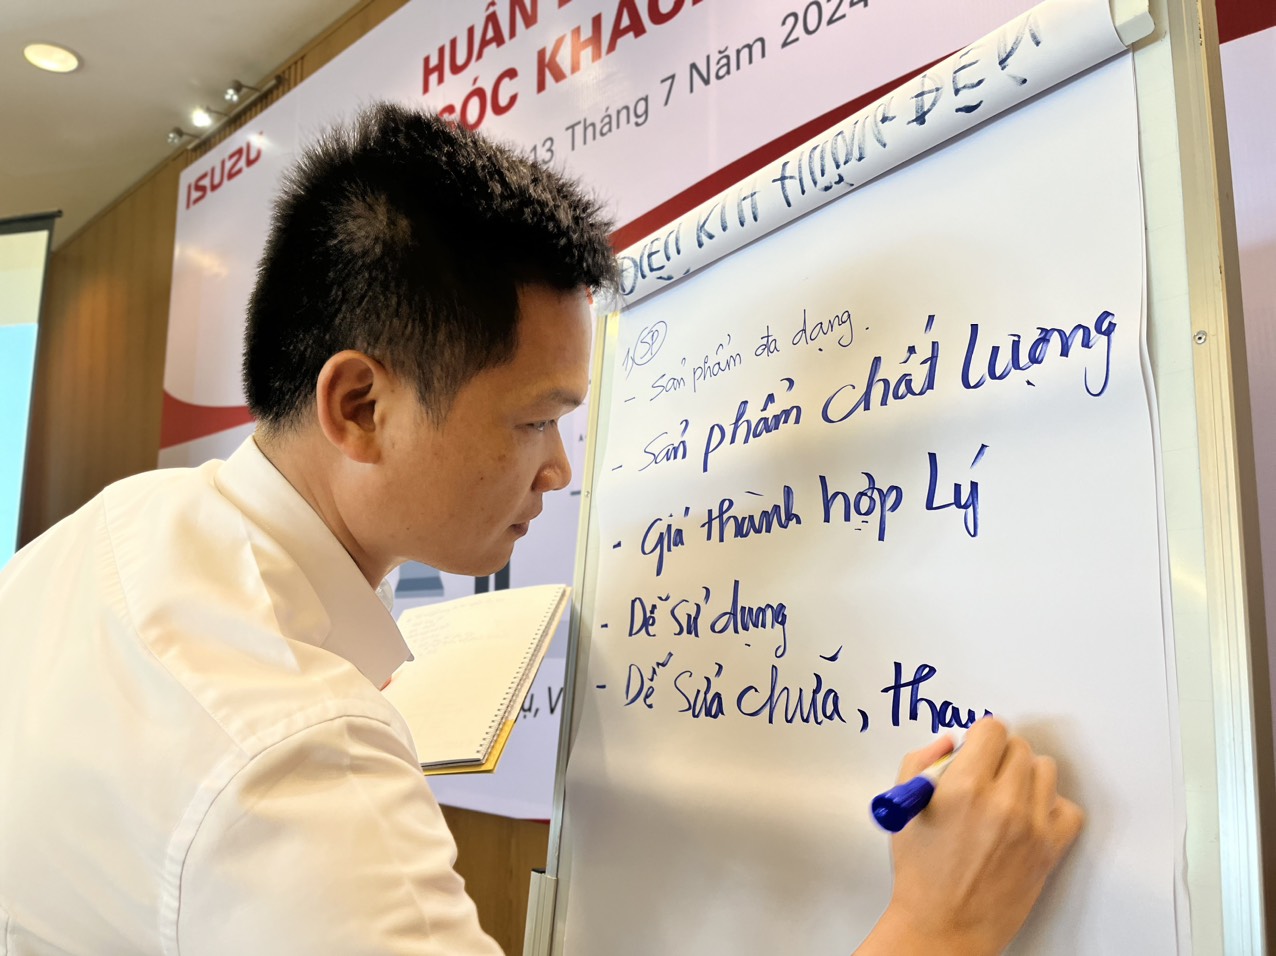 HUẤN
SÓC KHÁC
13 Tháng 7 Năm 2024
ISUZU
ĐIỆN KÍH THƯỚC ĐẸN
1, SP
- Sản phẩm đa dạng.
- Sản phẩm chất lượng
- Giá thành hợp lý
- Dễ sử dụng
- Dễ sửa chữa, thay
ụ, V